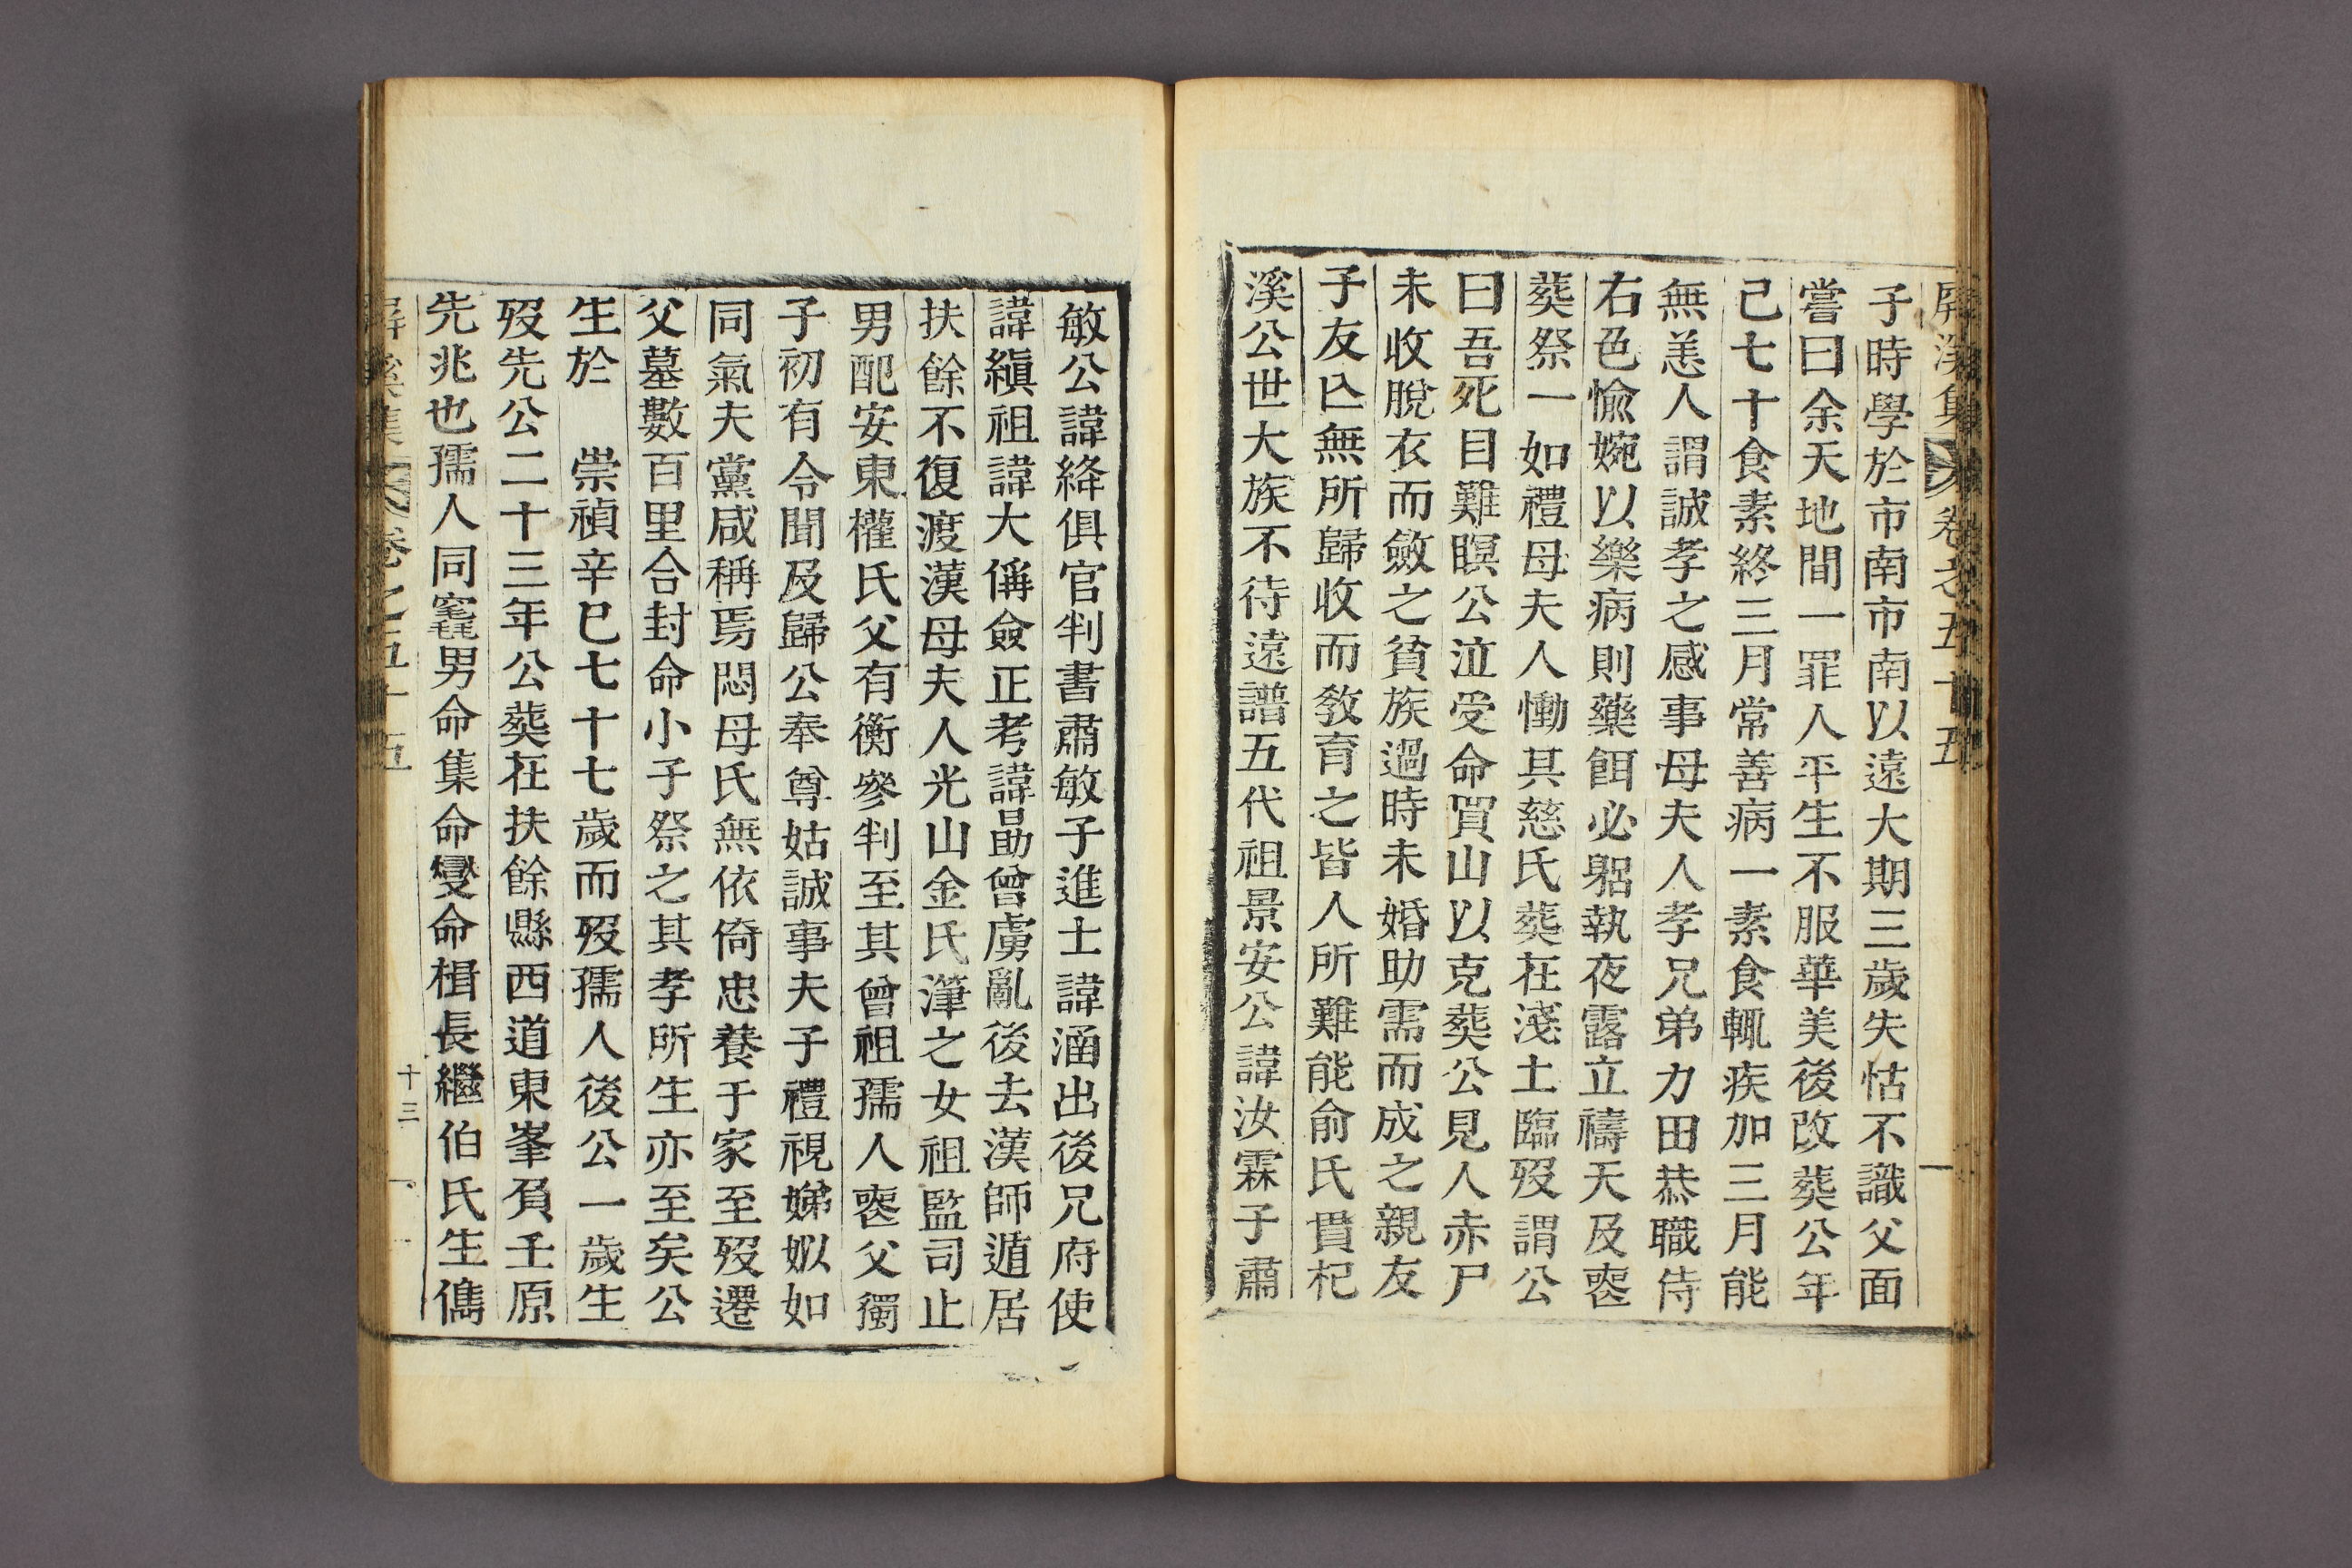 屛溪集 卷之五十五
子時學於市南市南以遠大期三歲失怙不識父面
嘗曰余天地間一罪人平生不服華美後改葬公年
已七十食素終三月常善病一素食輒疾加三月能
無恙人謂誠孝之感事母夫人孝兄弟力田恭職侍
右色愉婉以樂病則藥餌必躬執夜露立禱天及喪
葬祭一如禮母夫人慟其慈氏葬在淺土臨歿謂公
曰吾死目難瞑公泣受命買山以克葬公見人赤尸
未收脫衣而斂之貧族過時未婚助需而成之親友
子友亾無所歸收而敎育之皆人所難能俞氏貫杞
溪公世大族不待遠譜五代祖景安公諱汝霖子肅
敏公諱絳俱官判書肅敏子進士諱涵出後兄府使
諱縝祖諱大偁僉正考諱勗曾虜亂後去漢師遁居
扶餘不復渡漢母夫人光山金氏潷之女祖監司止
男配安東權氏父有衡參判至其曾祖孺人喪父獨
子初有令聞及歸公奉尊姑誠事夫子禮視娣姒如
同氣夫黨咸稱焉悶母氏無依倚忠養于家至歿遷
父墓數百里合封命小子祭之其孝所生亦至矣公
生於 崇禎辛巳七十七歲而歿孺人後公一歲生
歿先公二十三年公葬在扶餘縣西道東峯負壬原
先兆也孺人同窆男命集命燮命楫長繼伯氏生儁
屛溪集 卷之五十五 十三